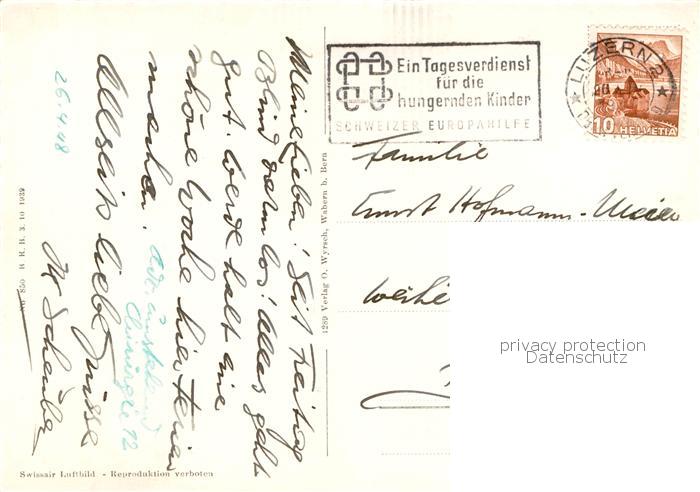 26.4.48
Meine Lieben! Seit Freitag
Blinddarm los! Alles geht
gut. Werde halt eine
schöne Woche hier Ferien
machen.
Allseits liebe Grüsse
Chirurgie 12
No 850 B R B 3. 10 1939
Swissair Luftbild - Reproduktion verboten
1289 Verlag O. Wyrsch, Wabern b. Bern
Ein Tagesverdienst
für die
hungernden Kinder
SCHWEIZER EUROPAHILFE
LUZERN 2
10 HELVETIA
Familie
Ernst Hofmann-Meier
privacy protection
Datenschutz